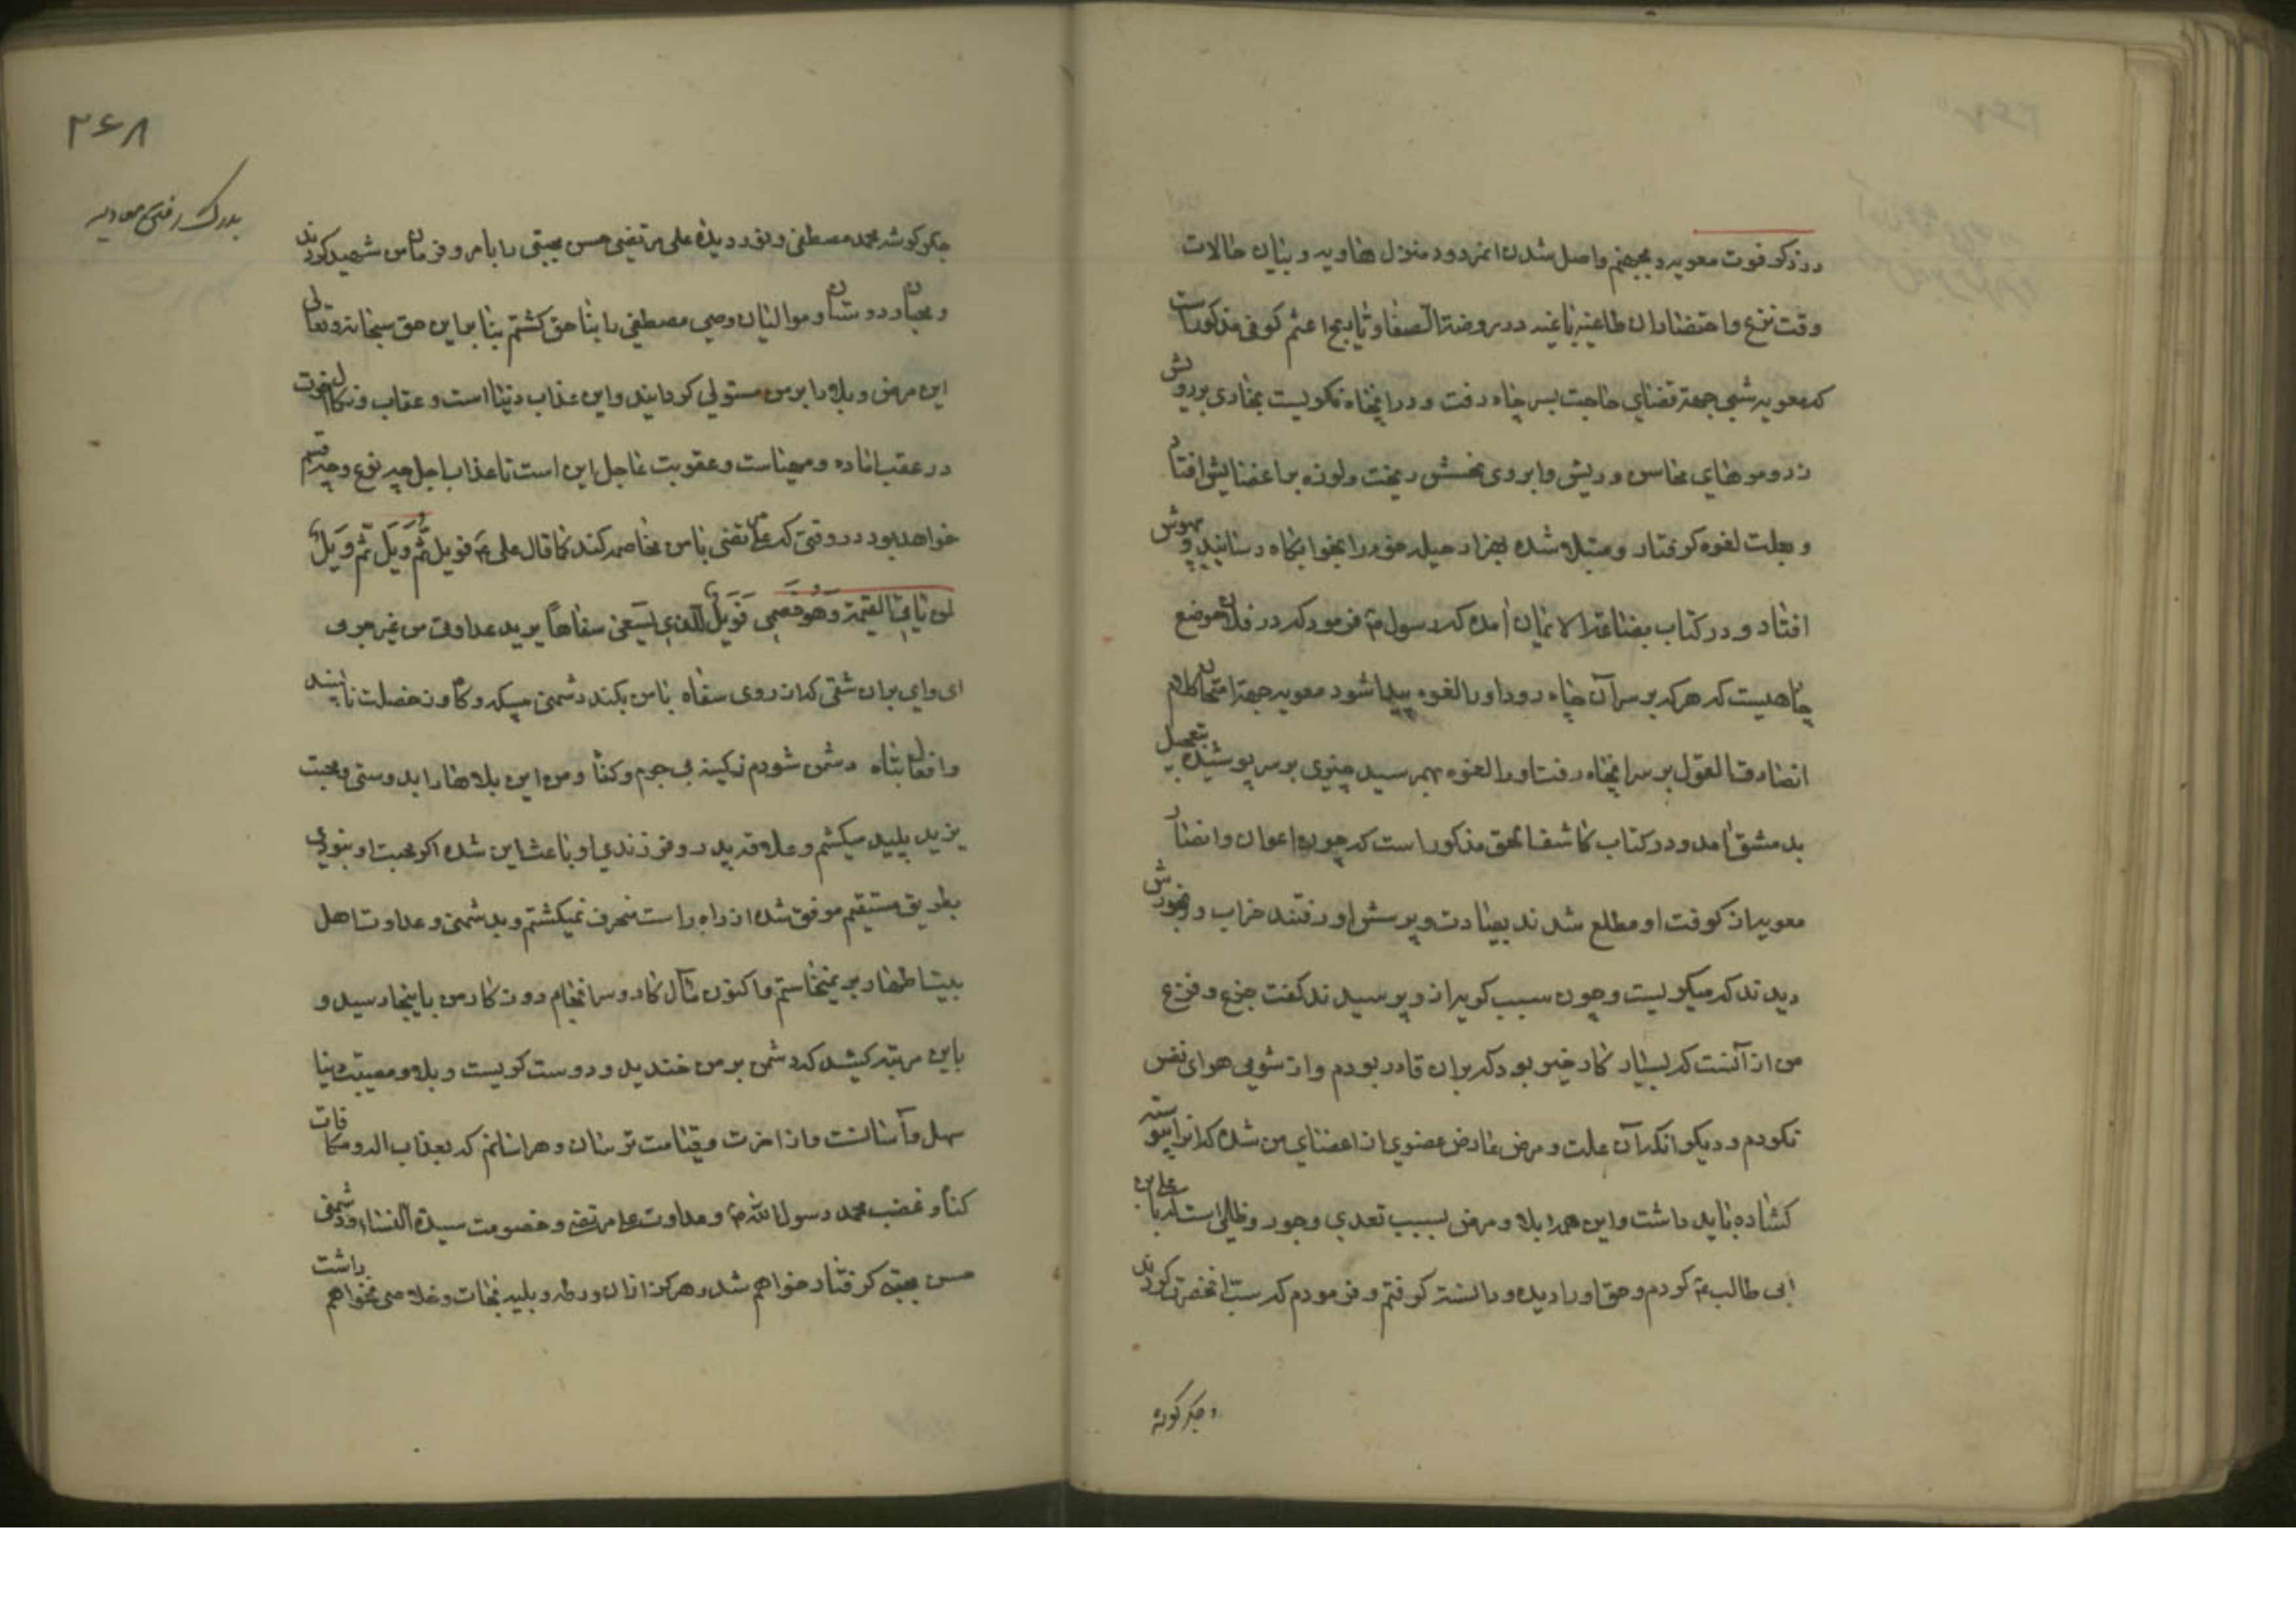 در ذکر فوت معویه و بجهنم واصل شدن انمردود منزل هاویه و بیان حالات
وقت نزع و احتضار ان طاغیه باغیه در روضة الصفا و تاریخ اعثم کوفی مذکور است
که معویه شبی جهة قضای حاجت بسر چاه رفت و در انچاه نگریست بخاری برویش
زد و موهای محاسن و ریش و ابروی نحسش ریخت و لرزه بر اعضایش افتاد
و بعلت لغوه گرفتار و مبتلا شده بهزار حیله خود را بخوابگاه رسانید و بیهوش
افتاد و در کتاب بضاعة الایمان آمده که رسول ص فرمود که در فلان موضع
چاهیست که هر که بر سر آن چاه رود او را لغوه پیدا شود معویه جهة امتحان کلام
انصادق القول بر سر انچاه رفت او را لغوه بهم رسید چیزی بر سر پوشیده بتعجیل
بدمشق آمد و در کتاب کاشف الحق مذکور است که چون اعوان و انصار
معویه از کوفت او مطلع شدند بعیادت و پرسش او رفتند خراب و رنجورش
دیدند که میگریست و چون سبب گریه از و پرسیدند گفت جزع و فزع
من از آنست که بسیار کار خیر بود که بران قادر بودم و از شومی هوای نفس
نکردم و دیگر انکه آن علت و مرض عارض عضوی از اعضای من شده که انرا پیوسته
گشاده باید داشت و این همه بلا و مرض بسبب تعدی و جور و ظلمی است که با علی بن
ابی طالب ع کردم و حق او را دیده و دانسته گرفتم و فرمودم که سب انحضرت کردند
و جگر گوشه
۲۶۸
بدرک رفتن معاویه
جگر گوشه محمد مصطفی و نور دیده علی مرتضی حسن مجتبی را بامر و فرمان من شهید کردند
و محبان و دوستان و موالیان وصی مصطفی را بناحق کشتم بنابراین حق سبحانه و تعالی
این مرض و بلا را بر من مستولی گردانید و این عذاب دنیا است و عقاب و نکال اخرت
در عقب اماده و مهیاست و عقوبت عاجل این است تا عذاب اجل چه نوع و چه قسم
خواهد بود در وقتی که علی مرتضی با من مخاصمه کند کما قال علی ع فویل ثم ویل ثم ویل
لمن یاتی القیمة و هو خصمی فویل للذی یسعی سفاها یرید عداوتی من غیر جرمی
ای وای بران شقی که از روی سفاه با من بکند دشمنی بیکد و گاه و ز خصلت ناپسند
و افعال تباه دشمن شودم ز کینه بی جرم و گناه و من این بلاها را بدوستی و محبت
یزید پلید میکشم و علاقه پدر و فرزندی او باعث این شده اگر محبت او نبودی
بطریق مستقیم موفق شده از راه راست منحرف نمیگشتم و بدشمنی و عداوت اهل
بیت اطهار بر نمیخاستم و اکنون مآل کار و سرانجام روزگار من باینجا رسید و
باین مرتبه کشید که دشمن بر من خندید و دوست گریست و بلا و مصیبت دنیا
سهل و آسانست و از اخرت و قیامت ترسان و هراسانم که بعذاب الد و مکافات
گناه و غضب محمد رسول الله ص و عداوت علی مرتضی و خصومت سیدة النساء و دشمنی
حسن مجتبی گرفتار خواهم شد و هرگز ازان ورطه و بلیه نجات و خلاصی نخواهم داشت